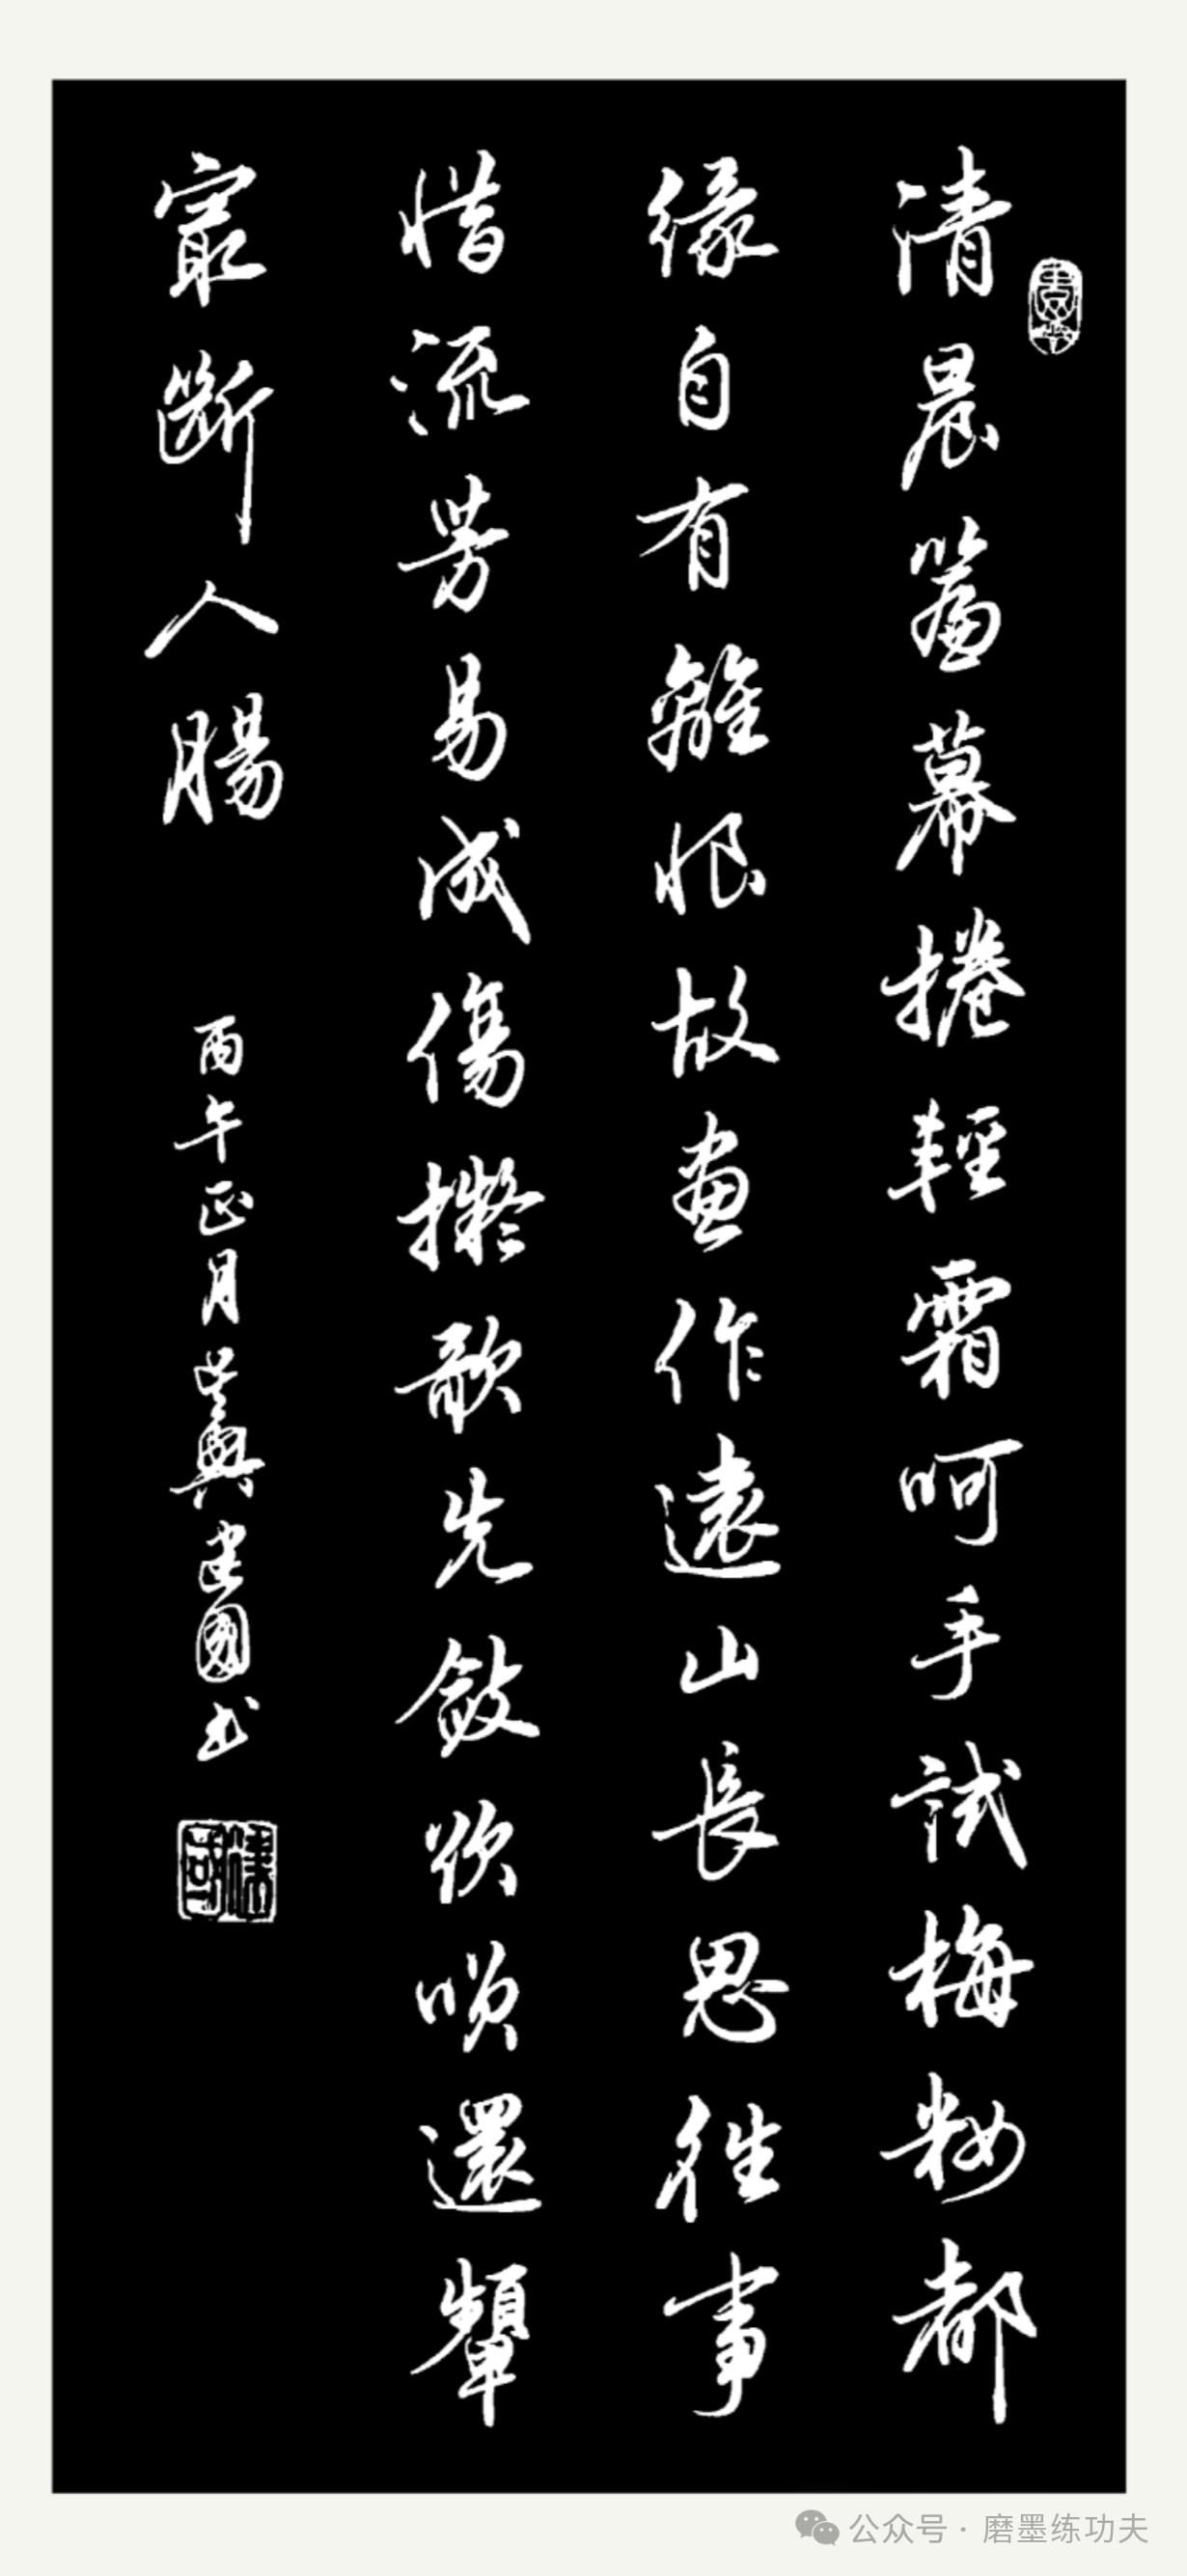 清晨簾幕捲輕霜呵手試梅妝都
緣自有離恨故畫作遠山長思往事
惜流芳易成傷擬歌先斂欲嘆還顰
最斷人腸
丙午正月吳興建國書
建國
公众号·磨墨练功夫